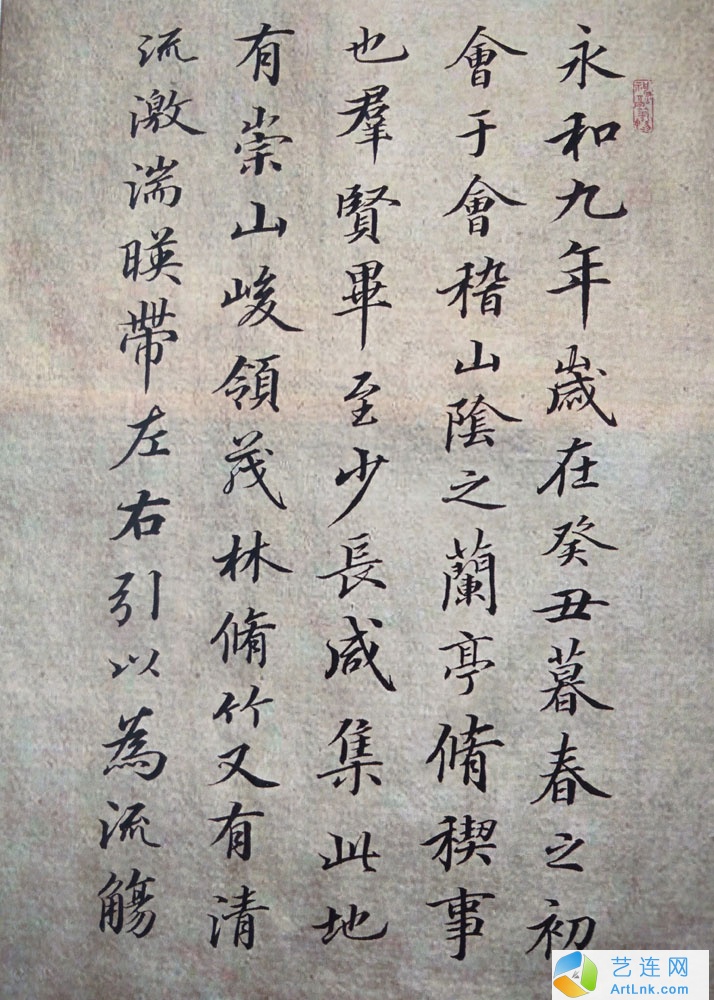 永和九年歲在癸丑暮春之初
會于會稽山陰之蘭亭脩稧事
也羣賢畢至少長咸集此地
有崇山峻領茂林脩竹又有清
流激湍暎帶左右引以為流觴
艺连网
ArtLnk.com